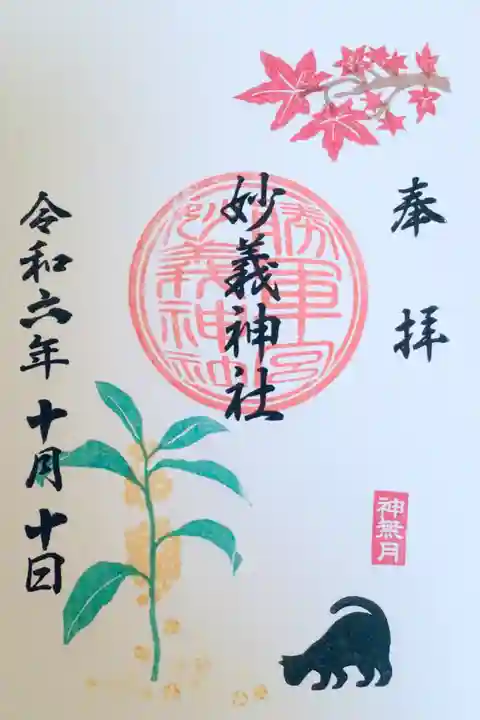 奉拝
勝軍宮
妙義神社
妙義神社
神無月
令和六年十月十日